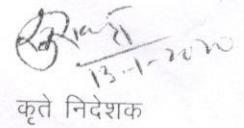 13-1-2020
कृते निदेशक